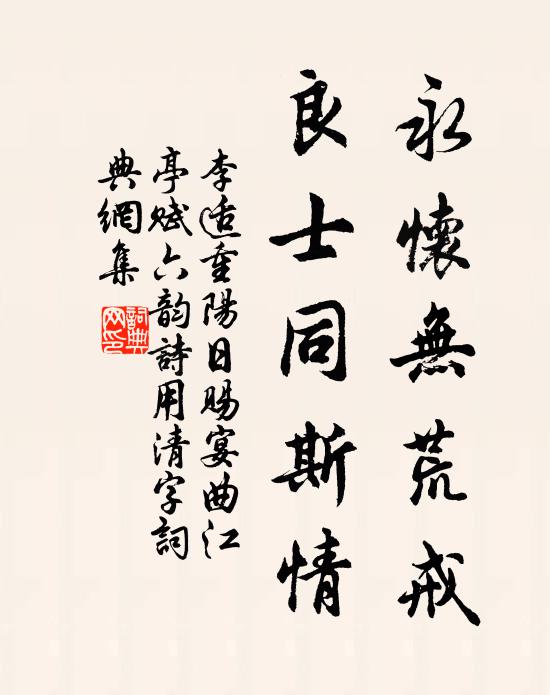 永懷無荒戒
良士同斯情
李适重陽日賜宴曲江
亭賦六韵詩用清字詞
典網集
詞典
网印